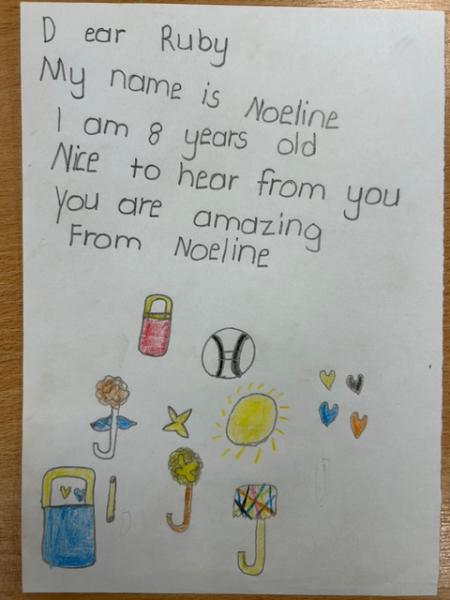 Dear Ruby
My name is Noeline
I am 8 years old
Nice to hear from you
You are amazing
From Noeline